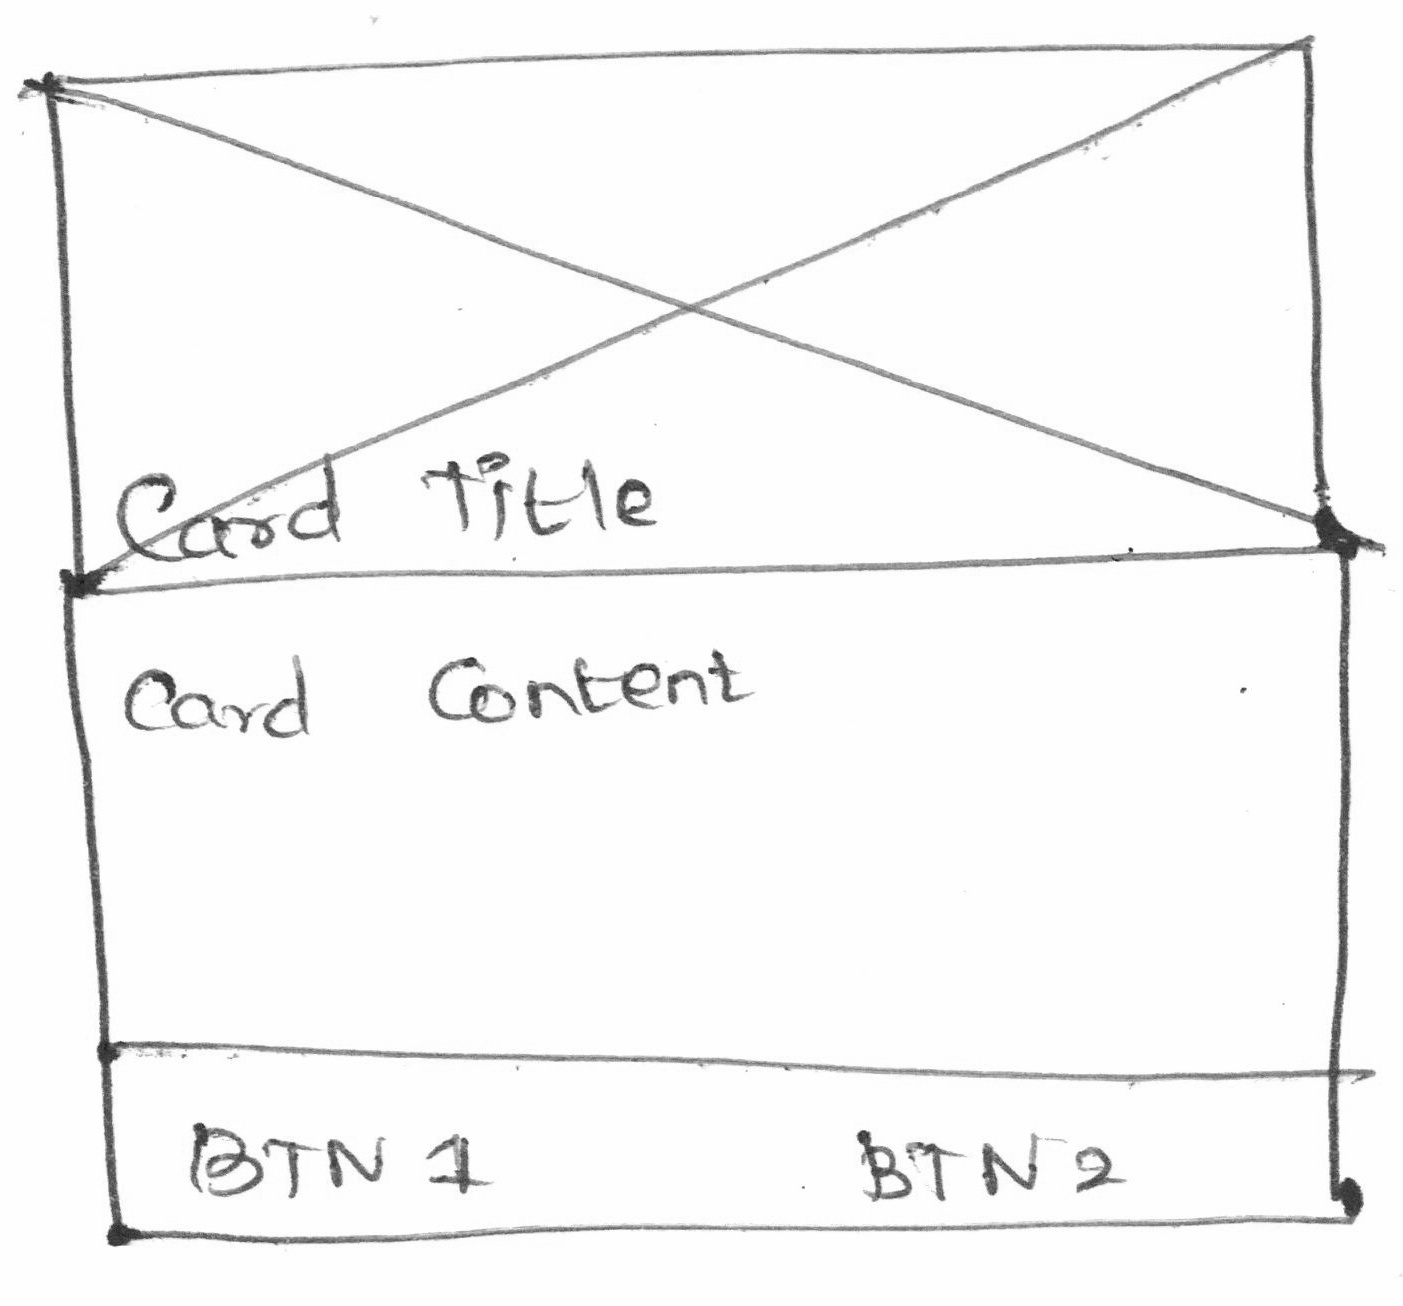 Card Title
Card Content
BTN 1 BTN 2